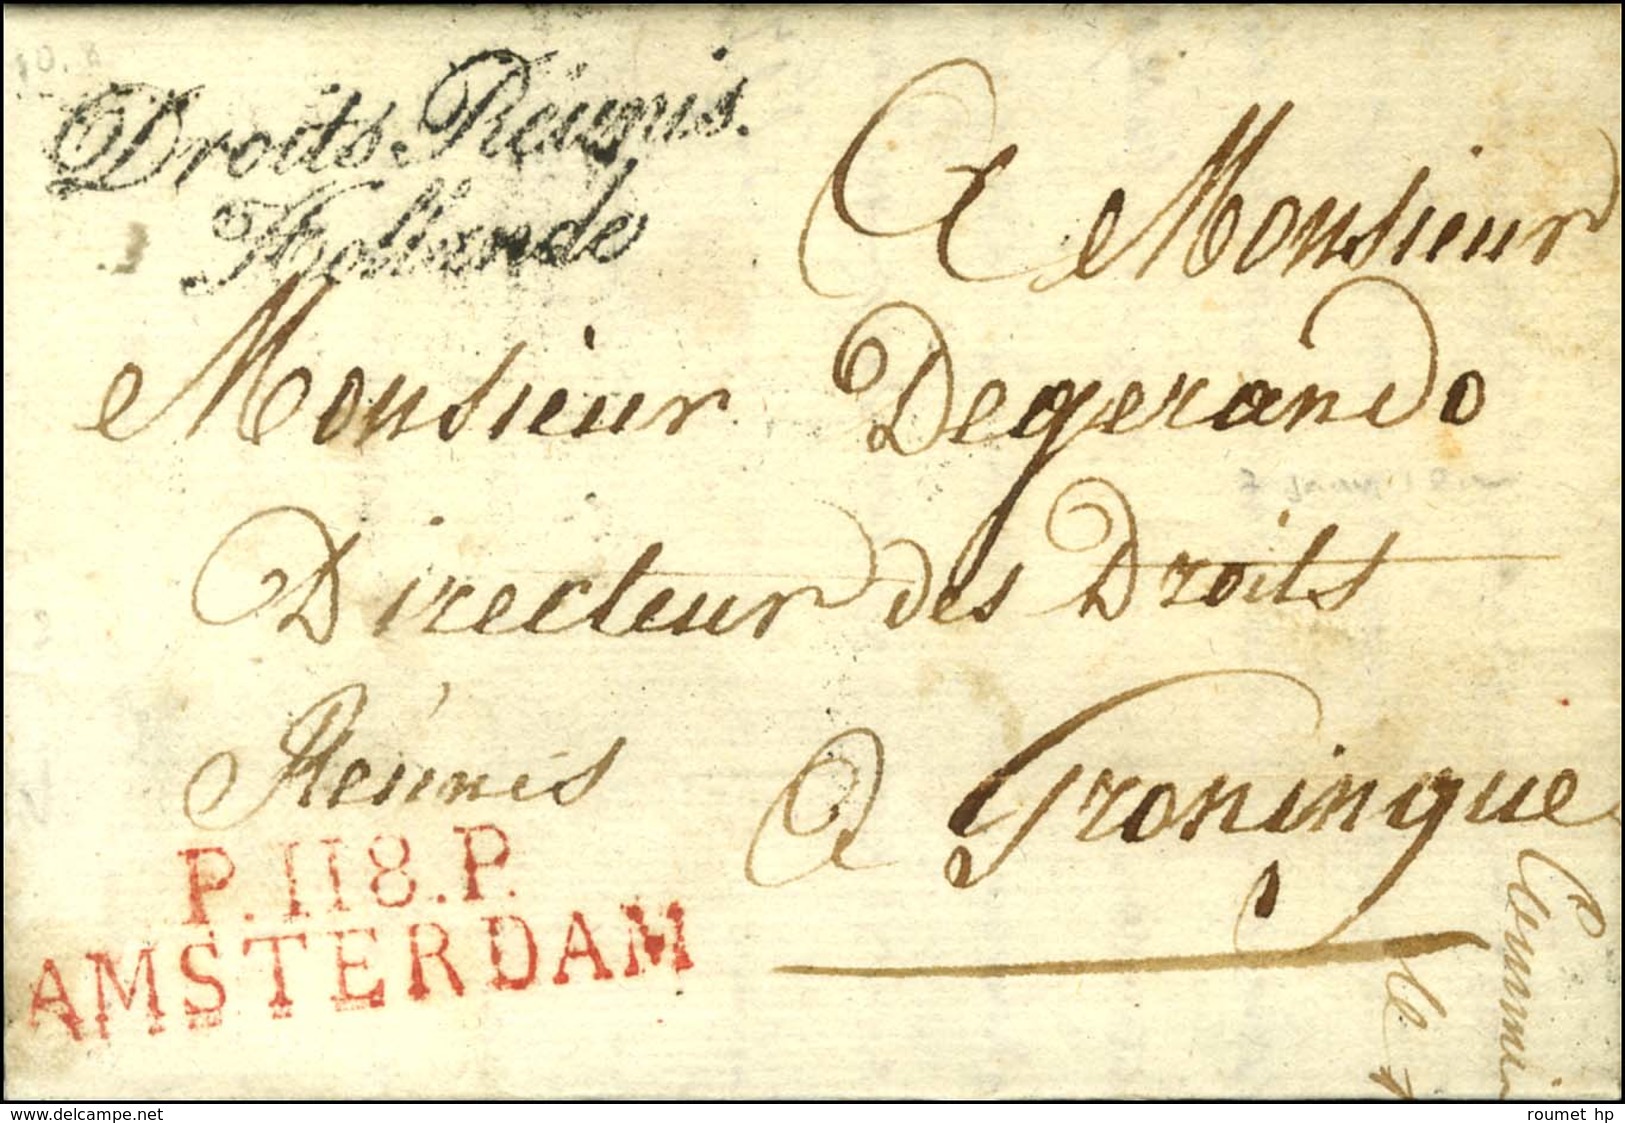 Droits Réunis.
Hollande
A Monsieur
Monsieur Degerando
Directeur des Droits
Réunis A Groningue
P.118.P.
AMSTERDAM
le
delcampe.net
roumet_hp